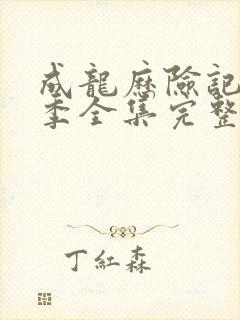 成龍歷險記
季全集完整
丁紅森